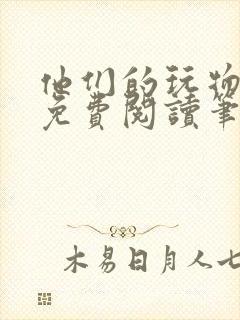 他们的玩物
免費閱讀筆
木易日月人七